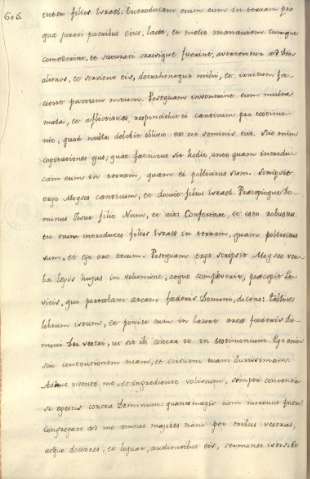 606. inter filios Israel. Introducam enim eum in terram pro
qua juravi patribus eius, lacte, et melle manantem. Cumque
comederint, et saturati, crassique fuerint, avertentur ad Deos
alienos, et servient eis, detrahentque mihi, et irritum fa-
cient pactum meum. Postquam invenerint eum multa
mala, et afflictiones, respondebit ei canticum pro testimo-
nio, quod nulla delebit oblivio ex ore seminis sui. Scio enim
cogitationes ejus, quae facturus sit hodie, antequam introdu-
cam eum in terram, quam ei pollicitus sum. Scripsit
ergo Moyses canticum, et docuit filios Israel. Praecepitque Do-
minus Josue filio Nun, et ait: Confortare, et esto robustus
tu enim introduces filios Israel in terram, quam pollicitus
sum, et ego ero tecum. Postquam ergo scripsit Moyses ver-
ba legis hujus in volumine, atque complevit, praecepit Le-
vitis, qui portabant arcam foederis Domini, dicens: Tollite
librum istum, et ponite eum in latere arcae foederis Do-
mini Dei vestri, ut sit ibi contra te in testimonium. Ego enim
scio contentionem tuam, et cervicem tuam durissimam.
Adhuc vivente me et ingrediente vobiscum, semper contentio-
se egistis contra Dominum quanto magis cum mortuus fuero?
Congregate ad me omnes majores natu per tribus vestras,
atque doctores, et loquar, audientibus eis, sermones istos